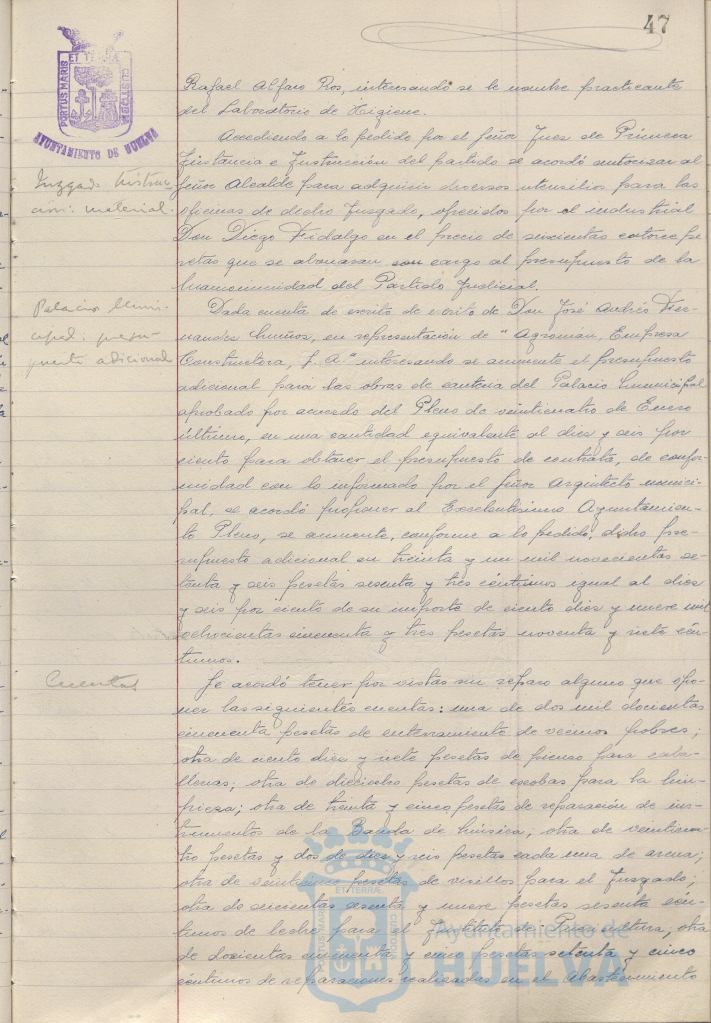 47
PORTUS MARIS ET TERRÆ CUSTODIA
AYUNTAMIENTO DE HUELVA
Rafael Alfaro Ros, interesando se le nombre practicante
del Laboratorio de Higiene.
Juzgado Instruc
ción: material.
Accediendo a lo pedido por el Señor Juez de Primera
Instancia e Instrucción del partido se acordó autorizar al
Señor Alcalde para adquirir diversos utensilios para las
oficinas de dicho Juzgado, ofrecidos por el industrial
Don Diego Fidalgo en el precio de seiscientas catorce pe
setas que se abonaran con cargo al presupuesto de la
Mancomunidad del Partido Judicial.
Palacio Muni-
cipal: presu-
puesto adicional
Dada cuenta de escrito de escrito de Don José Andrés Fer-
nandez Muñoz, en representación de "Agroman, Empresa
Constructora, S. A." interesando se aumente el presupuesto
adicional para las obras de cantera del Palacio Municipal
aprobado por acuerdo del Pleno de veinticuatro de Enero
último, en una cantidad equivalente al diez y seis por
ciento para obtener el presupuesto de contrata, de confor-
midad con lo informado por el Señor Arquitecto munici-
pal, se acordó proponer al Excelentísimo Ayuntamien-
to Pleno, se aumente, conforme a lo pedido, dicho pre-
supuesto adicional en treinta y un mil novecientas se-
tenta y seis pesetas sesenta y tres céntimos igual al diez
y seis por ciento de su importe de ciento diez y nueve mil
ochocientas cincuenta y tres pesetas noventa y siete cén-
timos.
Cuentas
Se acordó tener por vistas sin reparo alguno que opo-
ner las siguientes cuentas: una de dos mil doscientas
cincuenta pesetas de enterramiento de vecinos pobres;
otra de ciento diez y siete pesetas de pienso para caba-
llerias; otra de dieciocho pesetas de escobas para la lim-
pieza; otra de treinta y cinco pesetas de reparación de ins-
trumentos de la Banda de Música; otra de veinticua-
tro pesetas y dos de diez y seis pesetas cada una de arena;
otra de veinticinco pesetas de visillos para el Juzgado;
otra de seiscientas sesenta y nueve pesetas sesenta cén-
timos de leche para el Instituto de Puericultura; otra
de doscientas cincuenta y cinco pesetas setenta y cinco
céntimos de reparaciones realizadas en el abastecimiento
PORTUS MARIS ET TERRÆ CUSTODIA
Ayuntamiento de
HUELVA